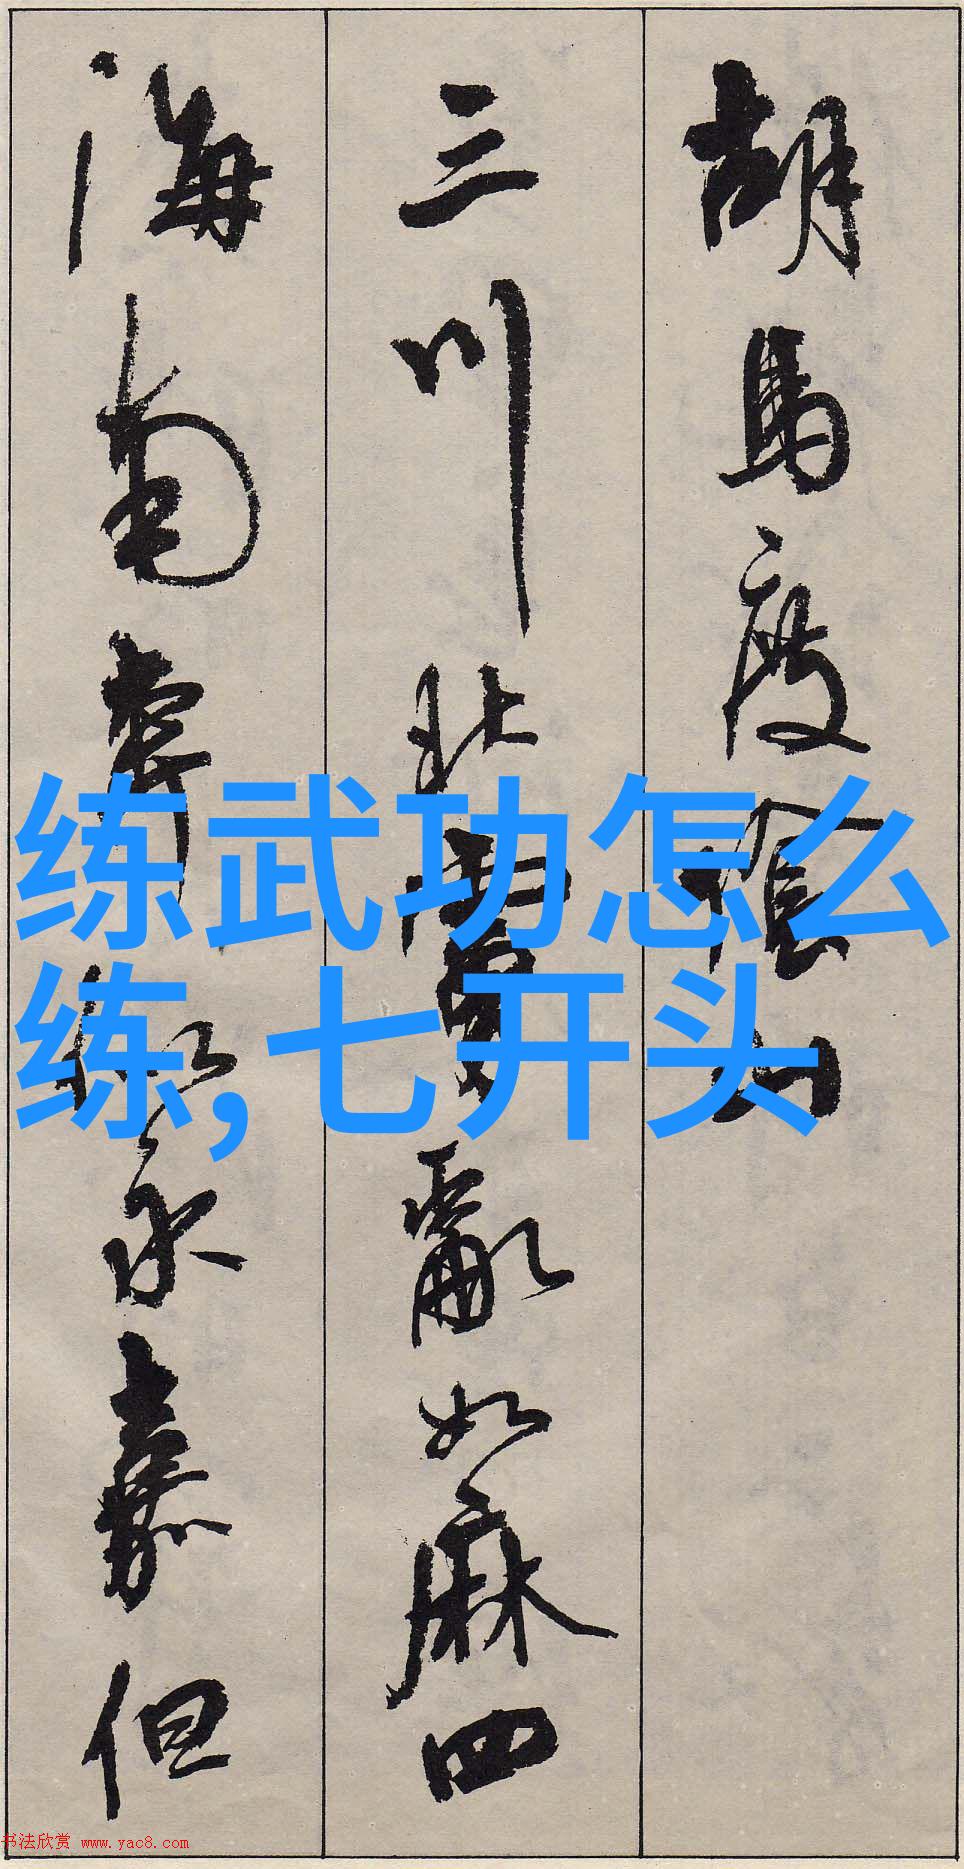 胡馬度陰山
三川北虜亂如麻四
海南奔似永嘉但
练武功怎么
练,七开头
书法欣赏 www.yac8.com